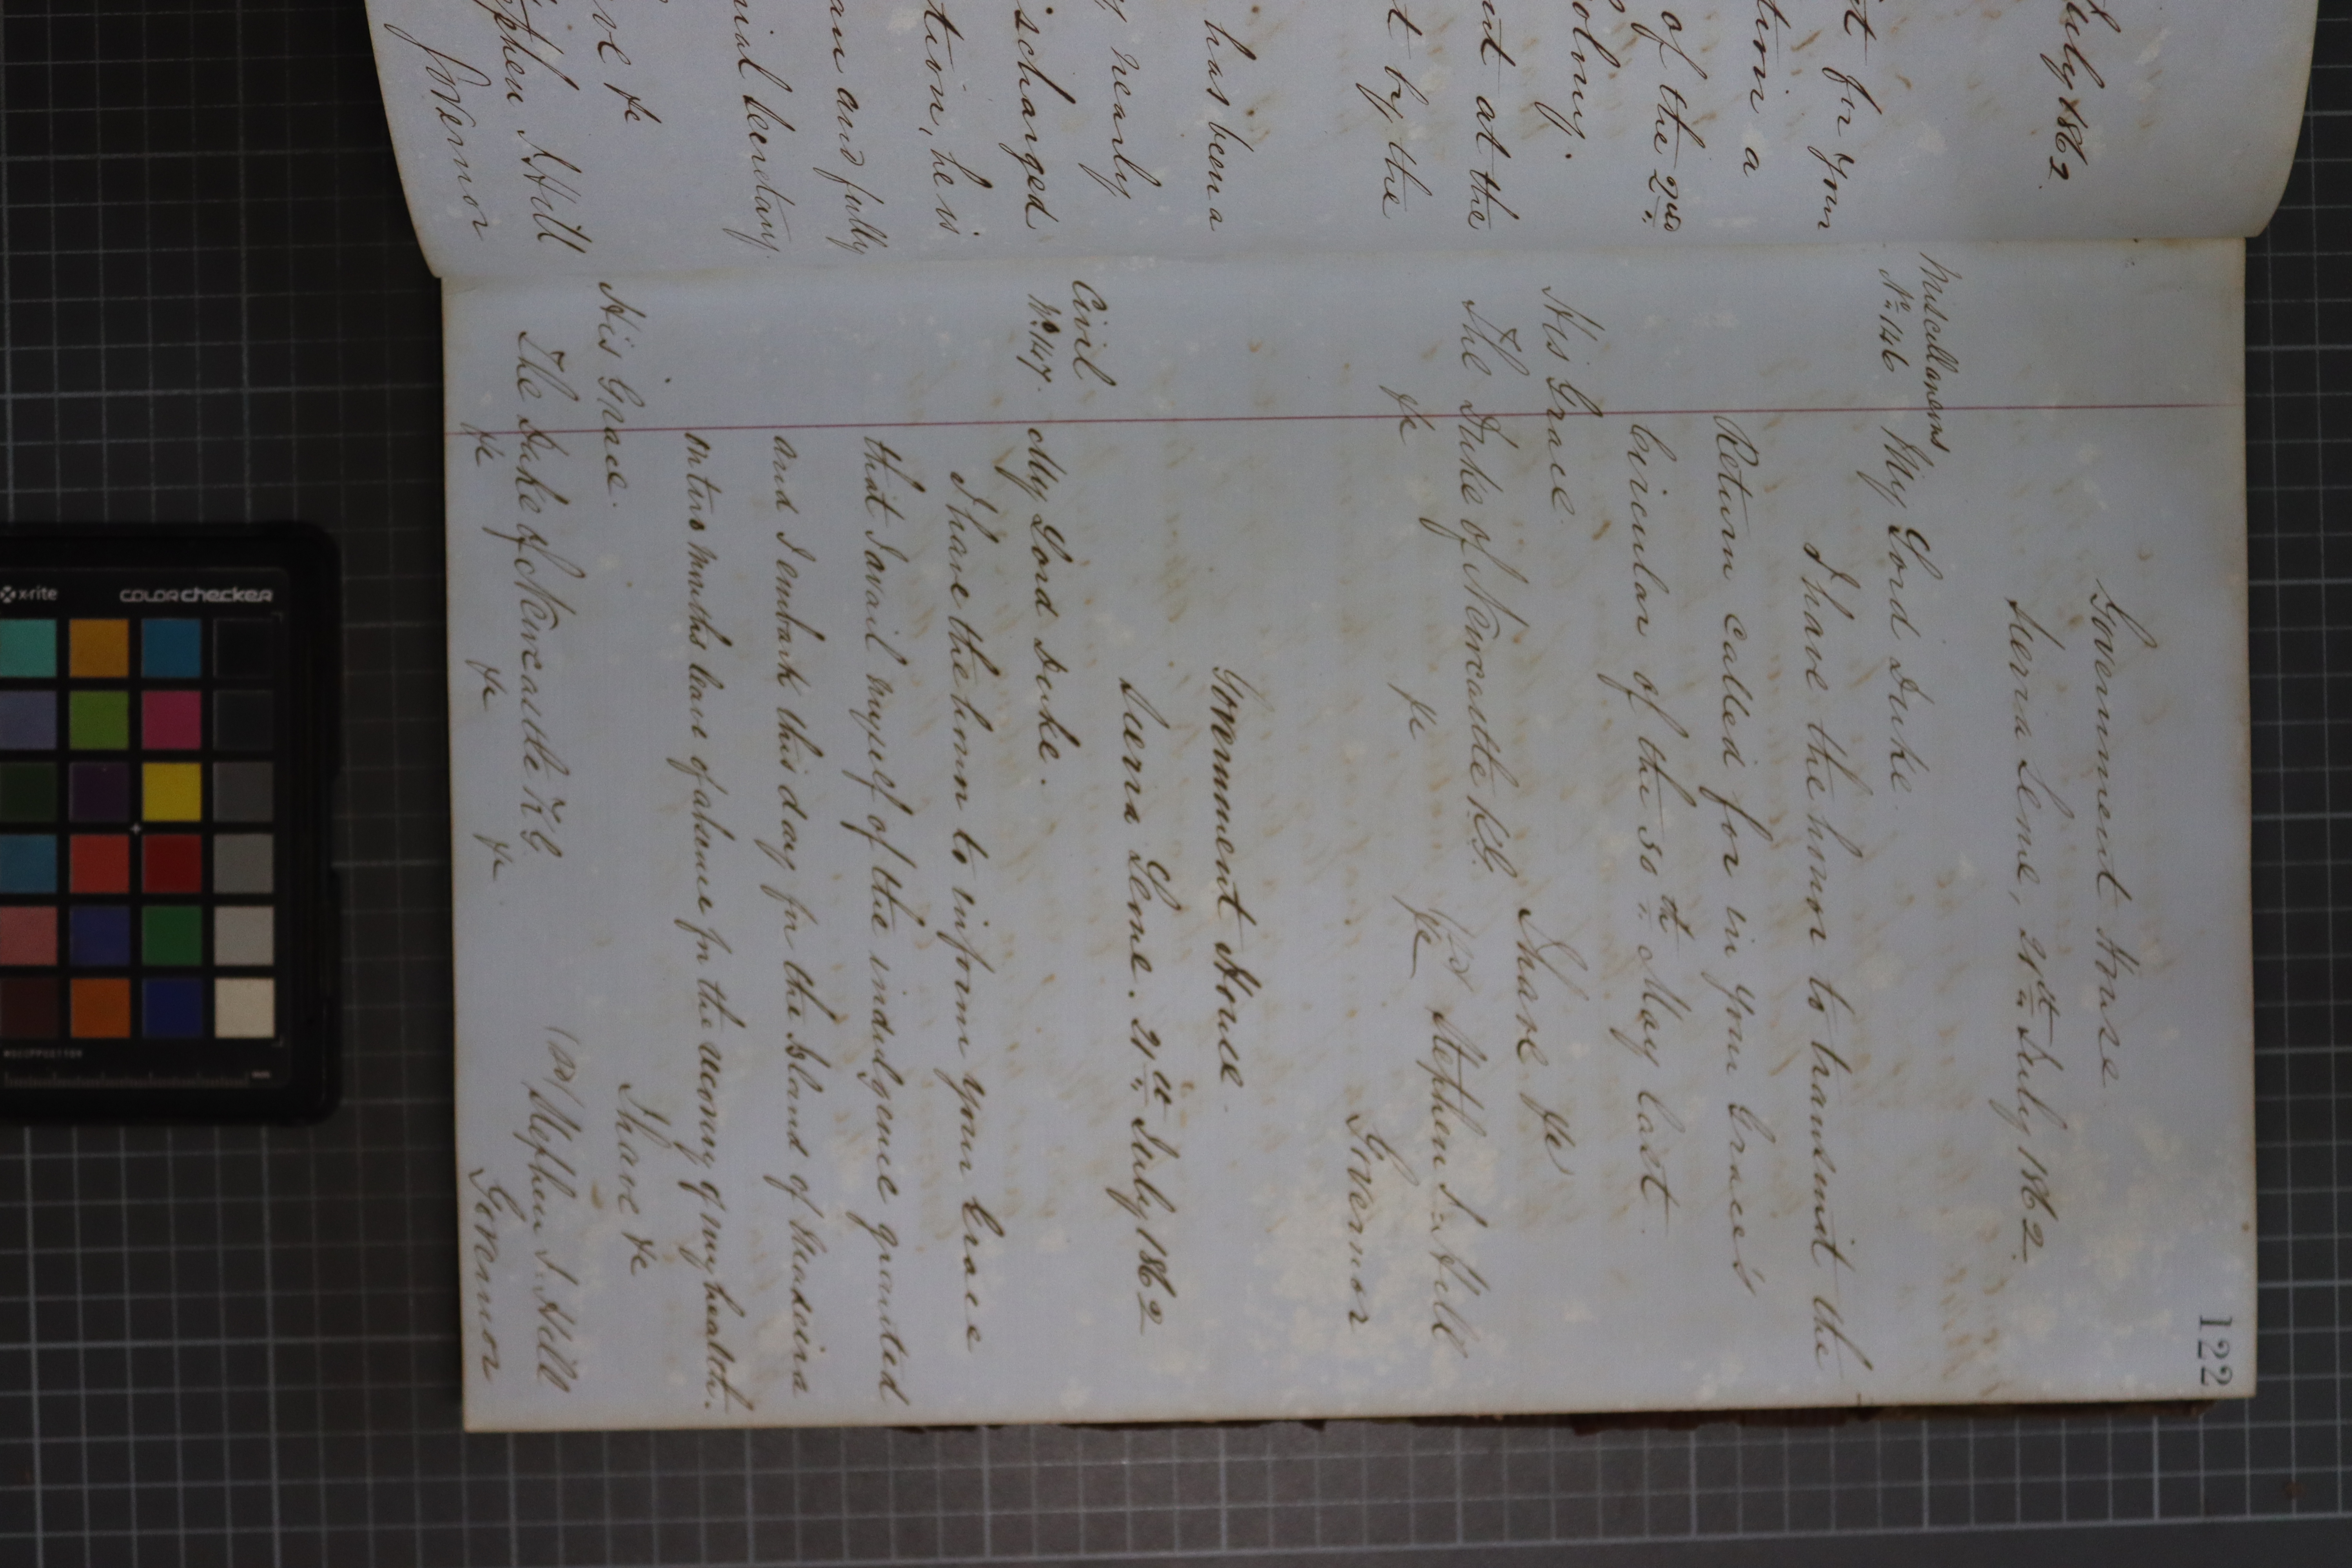 July 1862
t for your
tion a
of the 2nd.
olony.
nt at the
t by the
has been a
nearly
ischarged
tion, he is
an and fully
nial Secretary.
ve &c
phen J. Hill
Governor
122
Government House
Sierra Leone, 21st. July 1862.
Miscellaneous
No. 146
My Lord Duke.
I have the honor to transmit the
Return called for in your Grace's
Circular of the 30th. May last.
I have &c
His Grace.
The Duke of Newcastle K.G.
&c &c &c
(sd) Stephen J. Hill
Governor
Government House.
Sierra Leone. 21st. July 1862
Civil
No. 147.
My Lord Duke.
I have the honor to inform your Grace
that I avail myself of the indulgence granted
and I embark this day for the Island of Madeira
on two months leave of absence for the recovery of my health.
I have &c
His Grace.
The Duke of Newcastle K.G.
&c &c &c
(sd) Stephen J. Hill
Governor
x-rite
colorchecker